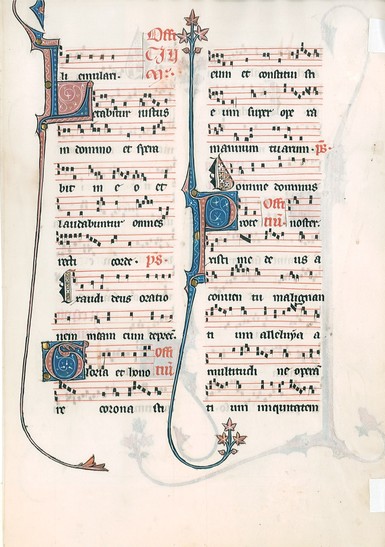 li emulari. Offi
CIU
M:
Letabitur iustus
in domino et spera
bit in e o et
laudabuntur omnes
recti corde. ps.
Exaudi deus oratio
nem meam cum deprec̄. Offi
Gloria et hono tiu᷑.
re corona sti
eum et constitu sti
e um super ope ra
manuum tuarum. ps.
Domine dominus
Offi
Prote tiu᷑. noster.
xisti me de us a
conven tu malignan
ti um alleluya a
multitudi ne opera᷑
ti um iniquitatem